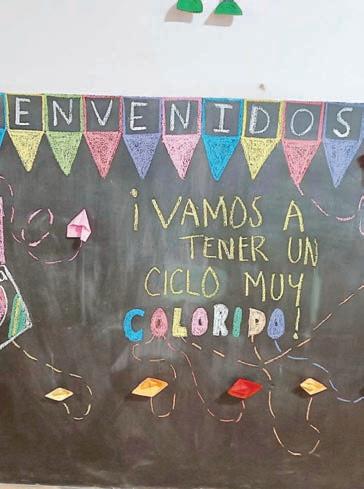 ENVENIDOS
¡VAMOS A
TENER UN
CICLO MUY
COLORIDO!